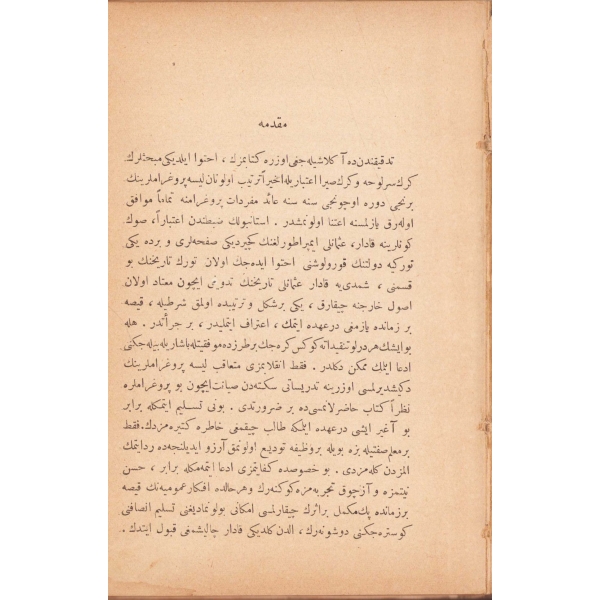 مقدمه
تدقيقندن ده آكلاشيله جغى اوزره كتابمزك ، احتوا ايلديكى مبحثلرك
كرك سرلوحه وكرك صيرا اعتباريله اخيراً ترتيب اولونان ليسه پروغراملرينك
برنجى دوره اوچونجى سنه سنه عائد مفردات پروغرامنه تماماً موافق
اوله رق يازلمسنه اعتنا اولونمشدر . استانبولك ضبطندن اعتباراً، صوك
كونلرينه قادار، عثمانلى ايمپراطورلغنك كچيرديكى صفحه لرى و برده يكى
توركيه دولتنك قورولوشنى احتوا ايده جك اولان تورك تاريخنك بو
قسمنى ، شمدى يه قادار عثمانلى تاريخنك تدوينى ايچون معتاد اولان
اصول خارجنه چيقارق ، يكى برشكل و ترتيبده اولمق شرطيله ، قيصه
بر زمانده يازمغى درعهده ايتمك ، اعتراف ايتمليدر ، بر جرأتدر . هله
بو ايشك هر درلو تنقيداته كوكس كره جك بر طرزده موفقيتله باشاريله بيله جكنى
ادعا ايتمك ممكن دكلدر . فقط انقلابمزى متعاقب ليسه پروغراملرينك
دكيشديرلمسى اوزرينه تدريساتى سكته دن صيانت ايچون بو پروغراملره
نظراً كتاب حاضرلانمسى ده بر ضرورتدى . بونى تسليم ايتمكله برابر
بو آغير ايشى درعهده ايتمكه طالب چيقمغى خاطره كتيرمزدك . فقط
برمعلم صفتيله بزه بويله بر وظيفه توديع اولونمق آرزو ايديلنجه ده رد ايتمك
المزدن كله مزدى . بو خصوصده كفايتمزى ادعا ايتمه مكله برابر ، حسن
نيتمزه و آز چوق تجربه مزه كوكنه رك و هر حالده افكار عموميه نك قيصه
بر زمانده پك مكمل بر اثرك چيقارلمسى امكانى بولونماديغنى تسليم انصافنى
كوستره جكنى دوشونه رك ، الدن كلديكى قادار چاليشمغى قبول ايتدك .